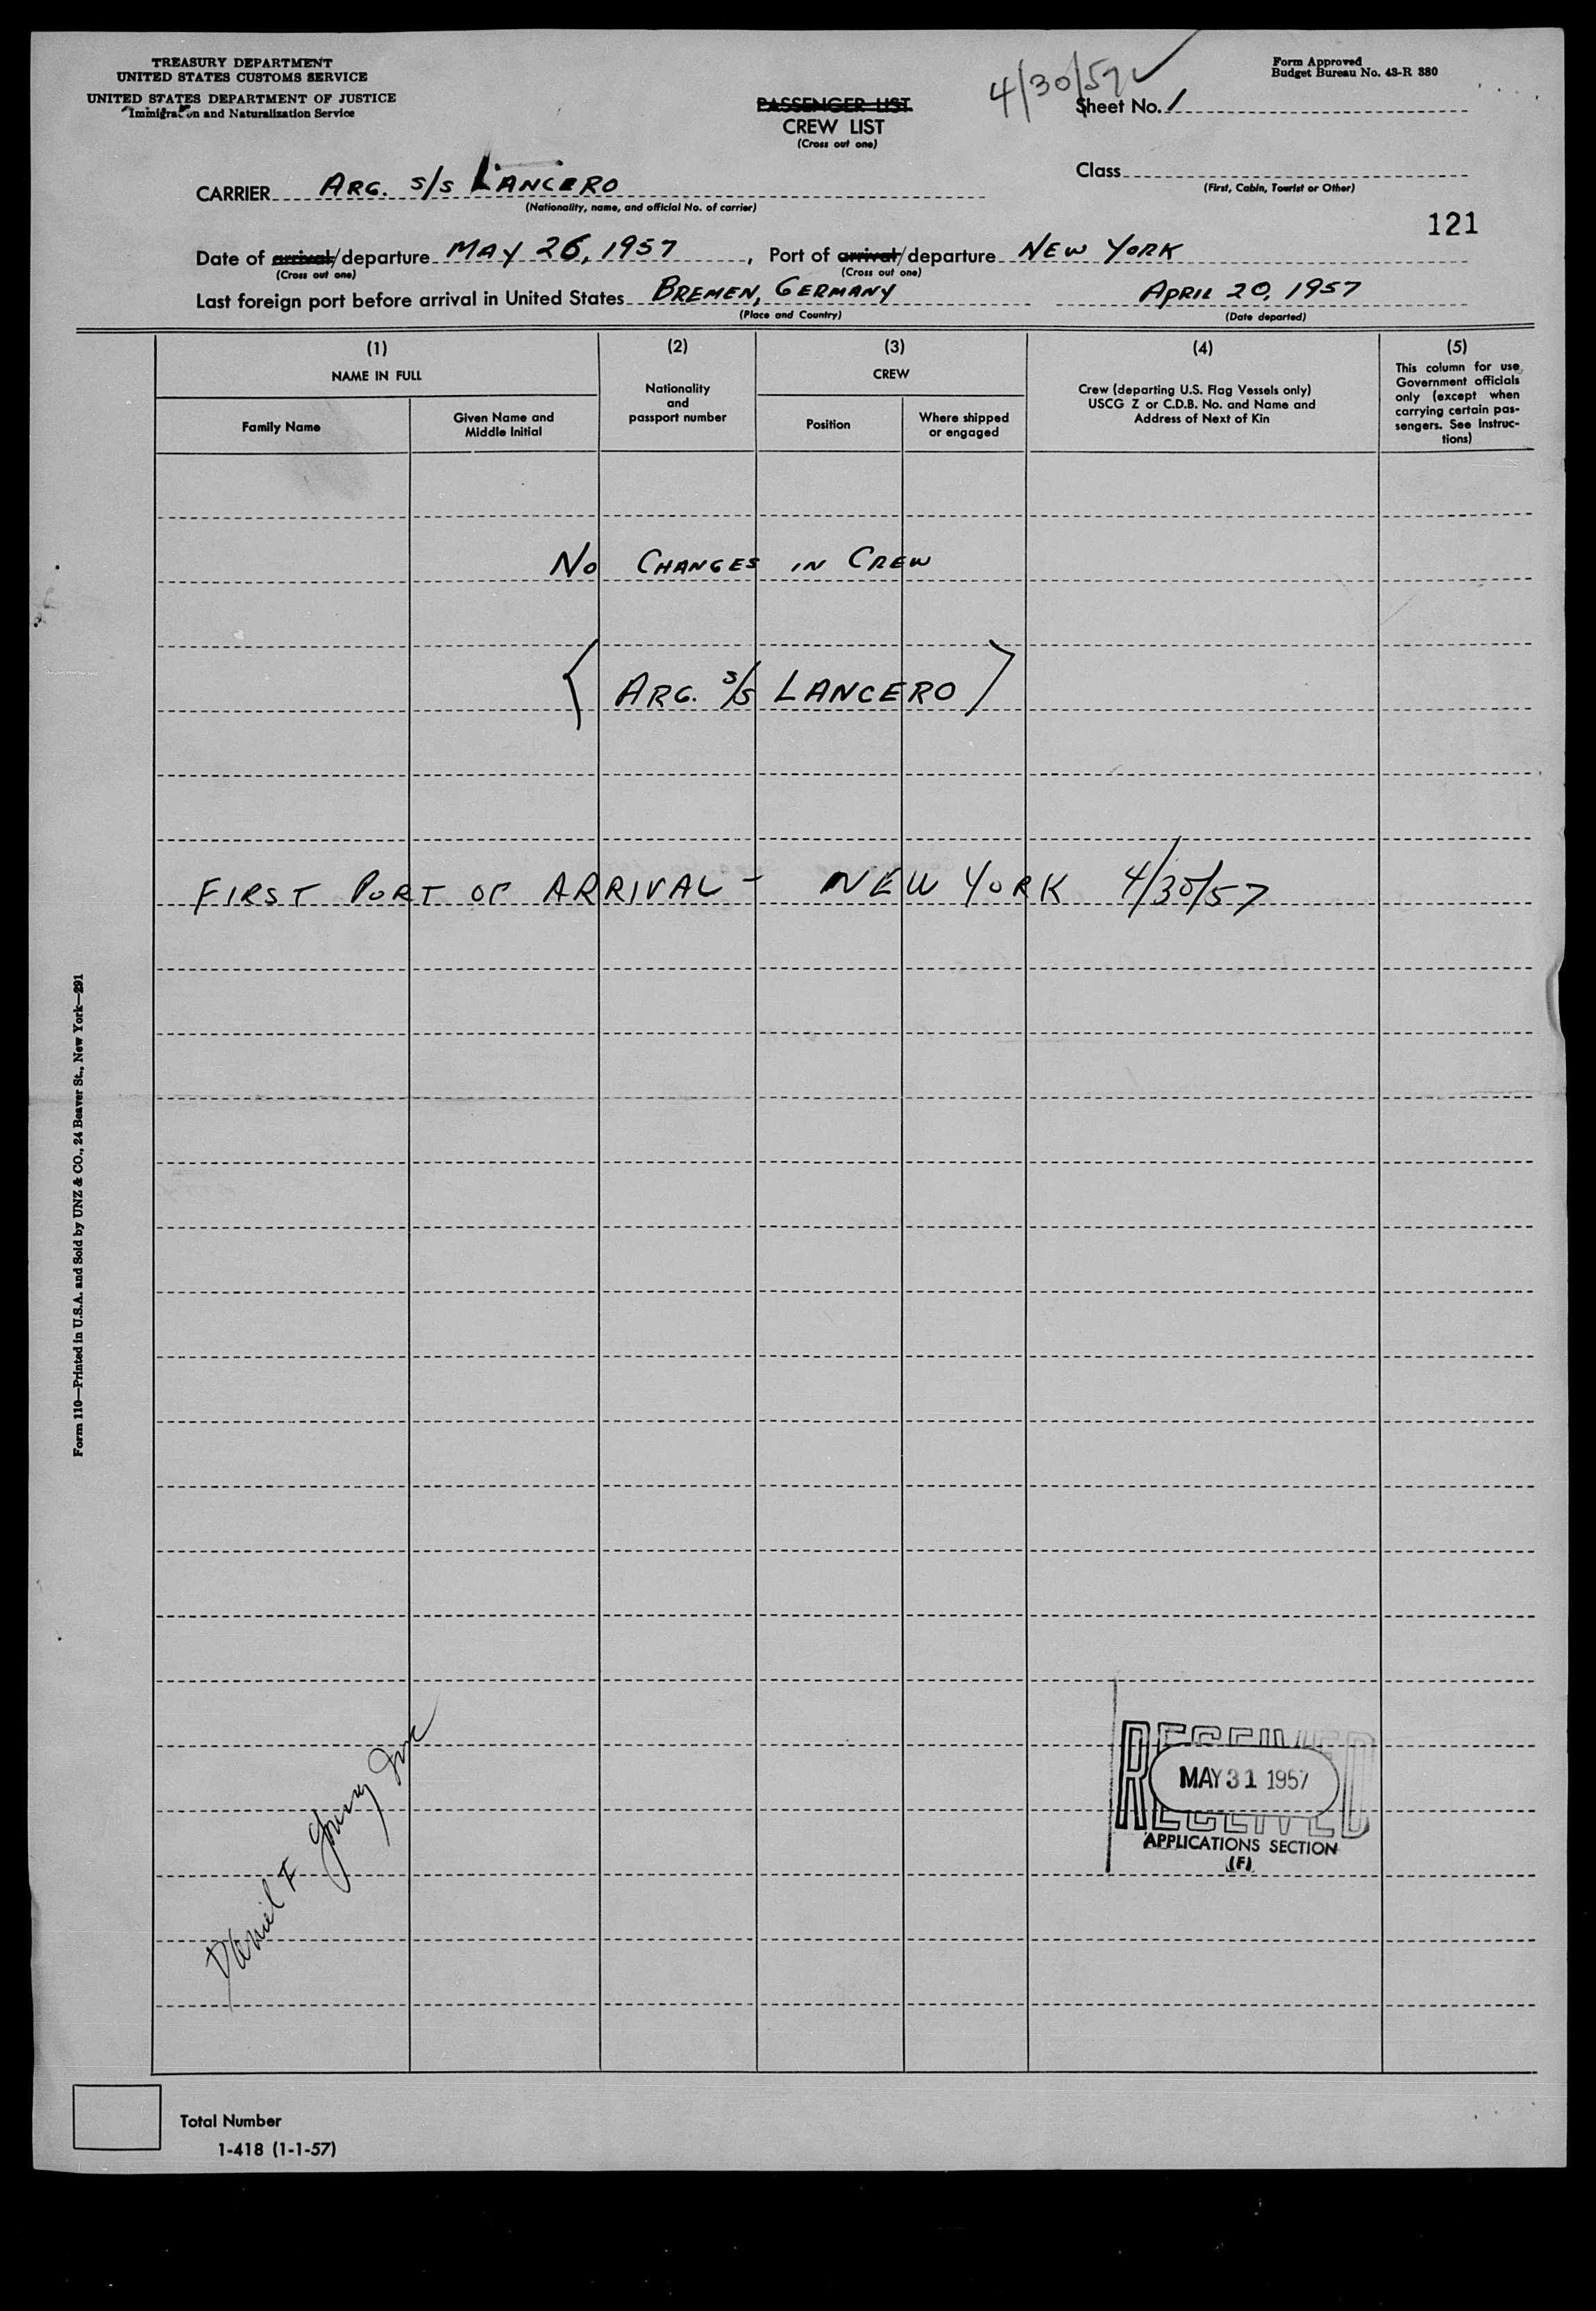 TREASURY DEPARTMENT
UNITED STATES CUSTOMS SERVICE
UNITED STATES DEPARTMENT OF JUSTICE
Immigration and Naturalization Service
4/30/57
Form Approved
Budget Bureau No. 43-R 380
PASSENGER LIST
CREW LIST
(Cross out one)
Sheet No. 1
Class
(First, Cabin, Tourist or Other)
CARRIER ARG. S/S LANCERO
(Nationality, name, and official No. of carrier)
121
Date of arrival/departure MAY 26, 1957, Port of arrival/departure NEW YORK
(Cross out one) (Cross out one)
Last foreign port before arrival in United States BREMEN, GERMANY APRIL 20, 1957
(Place and Country) (Date departed)
(1) (2) (3) (4) (5)
NAME IN FULL
Family Name
Given Name and
Middle Initial
Nationality
and
passport number
CREW
Position
Where shipped
or engaged
Crew (departing U.S. Flag Vessels only)
USCG Z or C.D.B. No. and Name and
Address of Next of Kin
This column for use
Government officials
only (except when
carrying certain pas-
sengers. See Instruc-
tions)
NO CHANGES IN CREW
ARG. S/S LANCERO
FIRST PORT OF ARRIVAL - NEW YORK 4/30/57
Form 110—Printed in U.S.A. and Sold by UNZ & CO., 24 Beaver St., New York—291
Daniel F Young Inc
RECEIVED
MAY 31 1957
RECEIVED
APPLICATIONS SECTION
(F)
Total Number
1-418 (1-1-57)